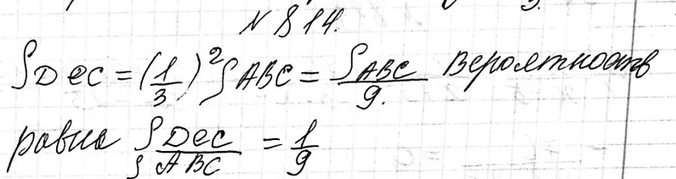 № 814.
SDEC = (1/3)² SABC = SABC/9. Вероятность
равна SDEC/SABC = 1/9